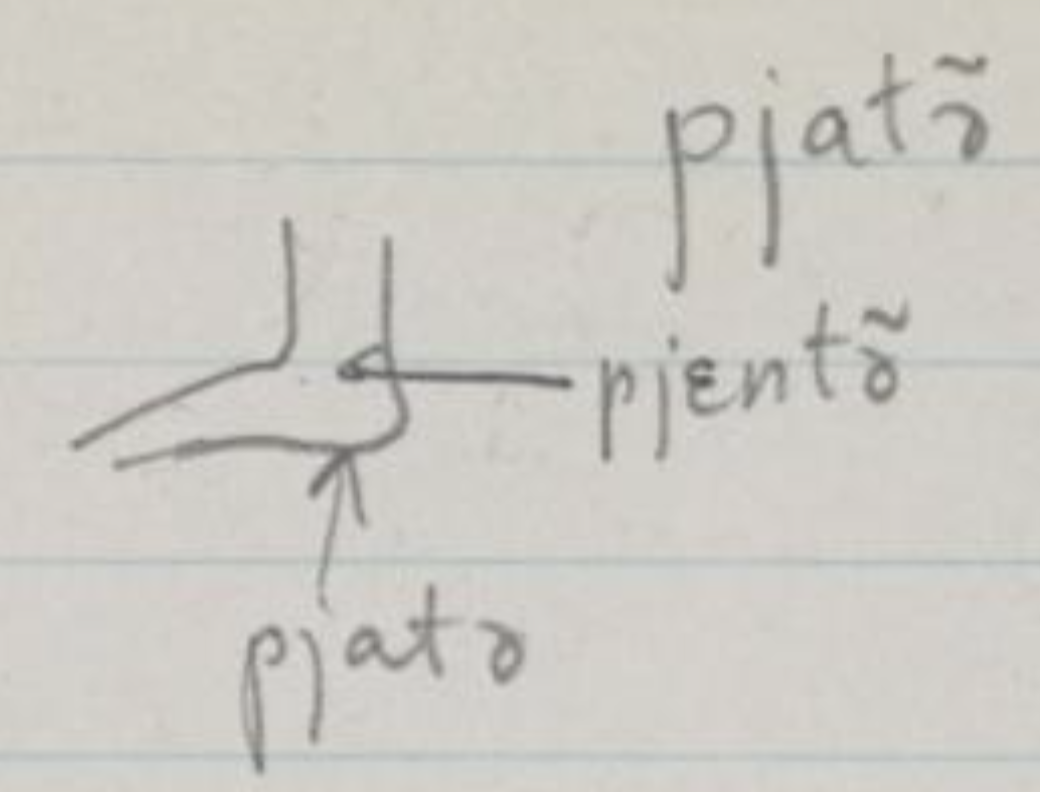 pjatɔ̃
pjɛntɔ̃
pjatɔ